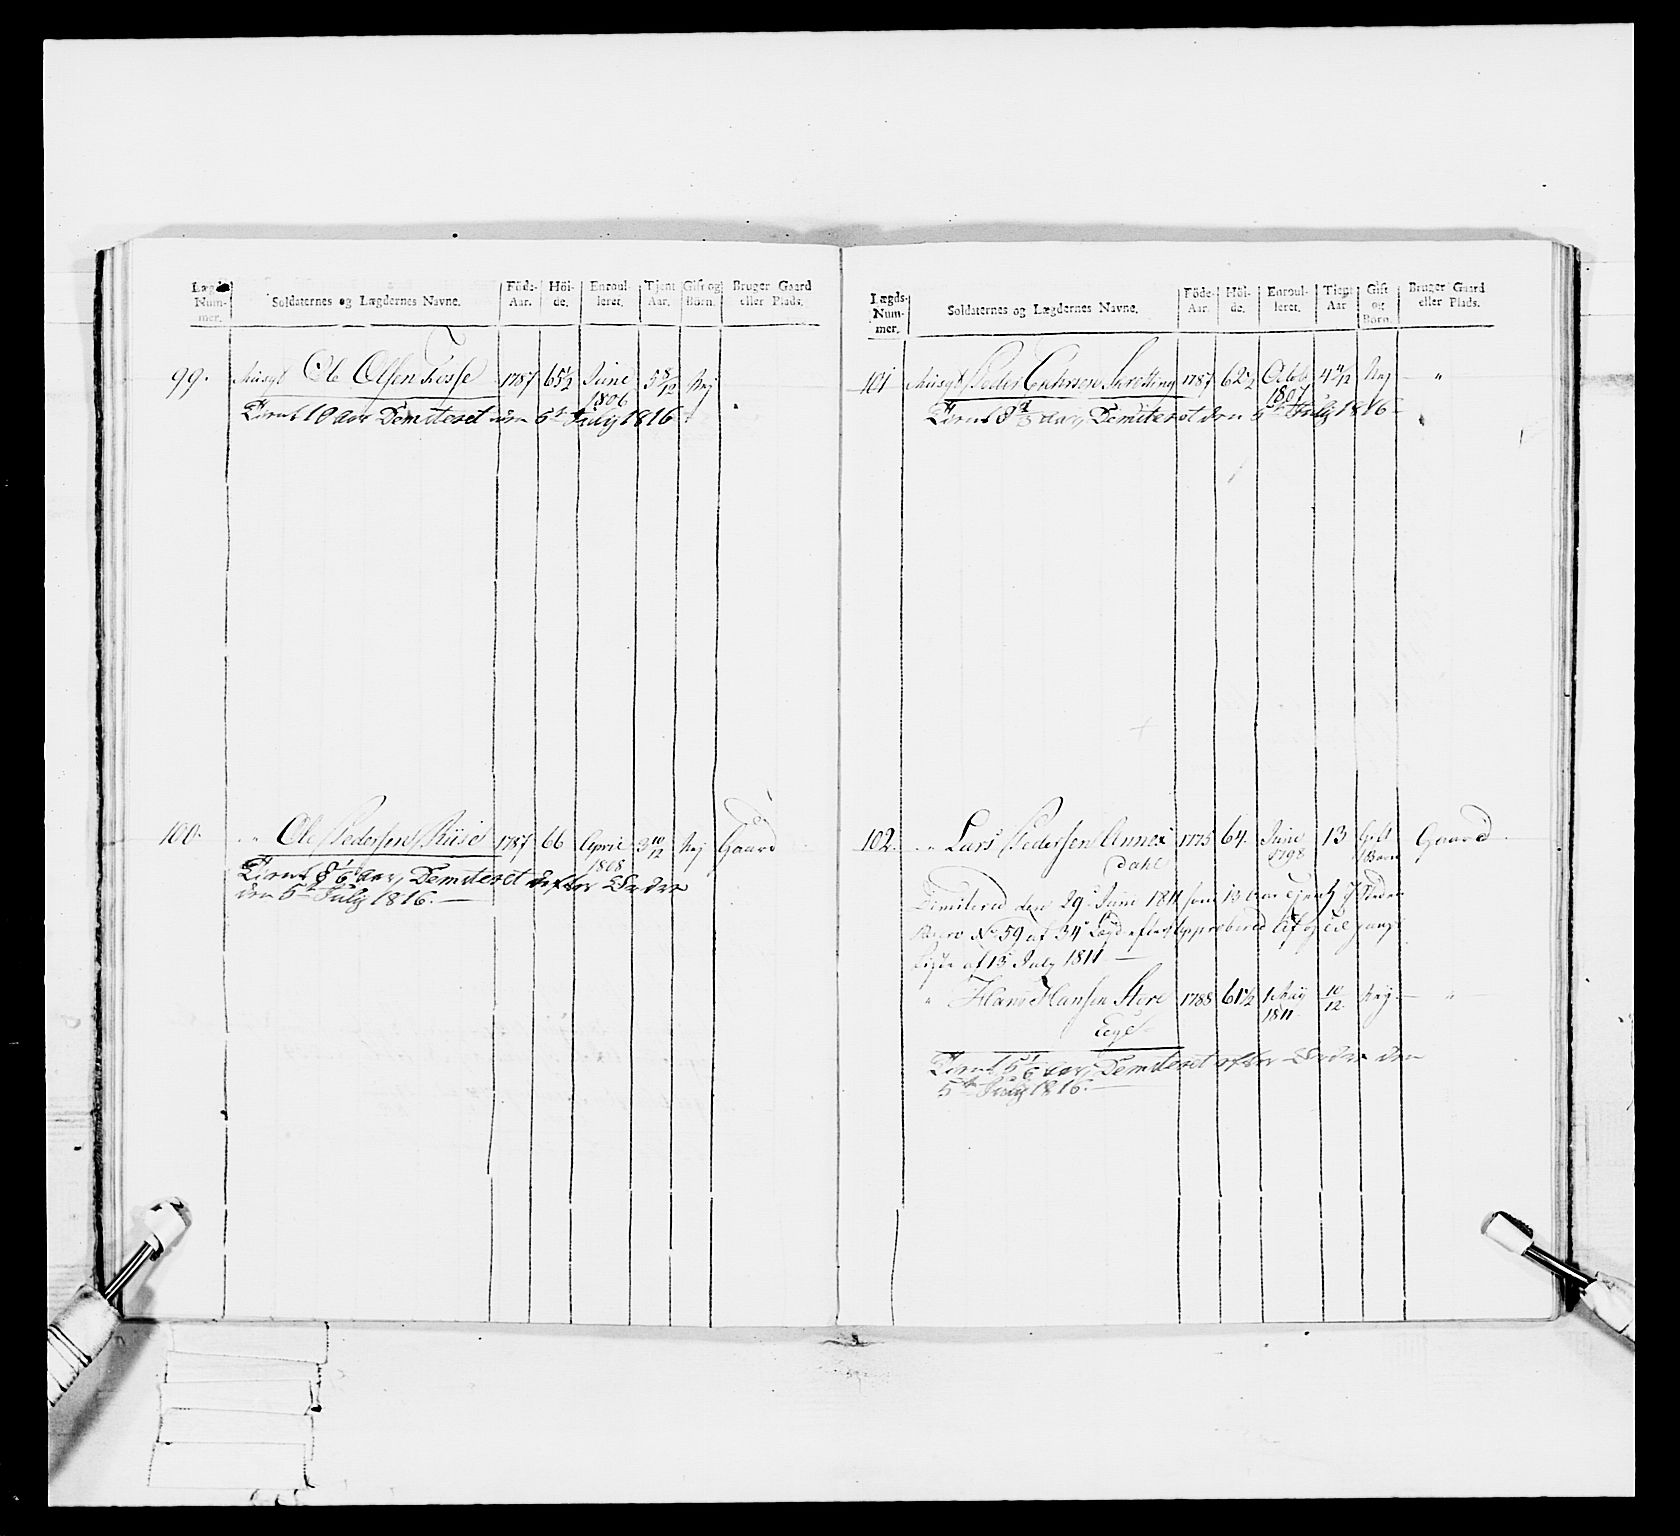 Lægds Num- mer. Soldaternes og Lægdernes Navne. Föde- Aar. Höi- de. Enroul- leret. Tjent Aar. Gift og Börn. Bruger Gaard eller Plads.
99. Musqt Ole Olsen Fosse 1787 65½ Junie 1806 5 8/12 Nej "
Tient 10 aar Demiteret den 5te July 1816.
100. " Ole Pedersen Riise 1787 66 Aprie 1808 3 10/12 Nej Gaard
Tient 8 1/6 aar, Demiteret efter Order
den 5te July 1816.
Lægds- Num- mer. Soldaternes og Lægdernes Navne. Föde- Aar. Höi- de. Enroul- leret. Tient Aar Gift og Börn. Bruger Gaard eller Plads.
101 Musqt Peder Skrotting 1787 62½ Octob 1807 4 4/12 Nej "
Tient 8 aar, Demiteret den 5te July 1816
102. " Lars Pedersen Annex 1775 64. Junie 1798 13 Gift 1 Barn Gaard
Dahl
Dimitered den 29de Juni 1811 som 13 aar tjent
No 59 af 34te Lægd efter Approbered Af og
Liste af 13 July 1811
" Hans Hansen Store 1788 61½ 1 May 1811 10/12 Nej "
Tient 5 1/6 aar, Demiteret efter Order den
5te July 1816.